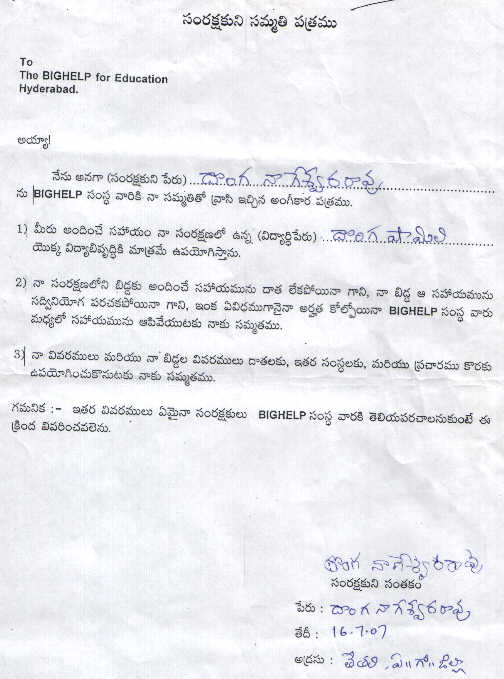 సంరక్షకుని సమ్మతి పత్రము
To
The BIGHELP for Education
Hyderabad.
అయ్యా!
నేను అనగా (సంరక్షకుని పేరు) దొంగ నాగేశ్వరరావు
ను BIGHELP సంస్థ వారికి నా సమ్మతితో వ్రాసి ఇచ్చిన అంగీకార పత్రము.
1) మీరు అందించే సహాయం నా సంరక్షణలో ఉన్న (విద్యార్థిపేరు) దొంగ షామిలి
యొక్క విద్యాభివృద్ధికి మాత్రమే ఉపయోగిస్తాను.
2) నా సంరక్షణలోని బిడ్డకు అందించే సహాయమును దాత లేకపోయినా గాని, నా బిడ్డ ఆ సహాయమును
సద్వినియోగ పరచకపోయినా గాని, ఇంక ఏవిధముగానైనా అర్హత కోల్పోయినా BIGHELP సంస్థ వారు
మధ్యలో సహాయమును ఆపివేయుటకు నాకు సమ్మతము.
3) నా వివరములు మరియు నా బిడ్డల వివరములు దాతలకు, ఇతర సంస్థలకు, మరియు ప్రచారము కొరకు
ఉపయోగించుకొనుటకు నాకు సమ్మతము.
గమనిక :- ఇతర వివరములు ఏమైనా సంరక్షకులు BIGHELP సంస్థ వారకి తెలియపరచాలనుకుంటే ఈ
క్రింద వివరించవలెను.
దొంగ నాగేశ్వరరావు
సంరక్షకుని సంతకం
పేరు : దొంగ నాగేశ్వరరావు
తేదీ : 16.7.07
అడ్రసు : తేతలి, ప॥గో॥జిల్లా